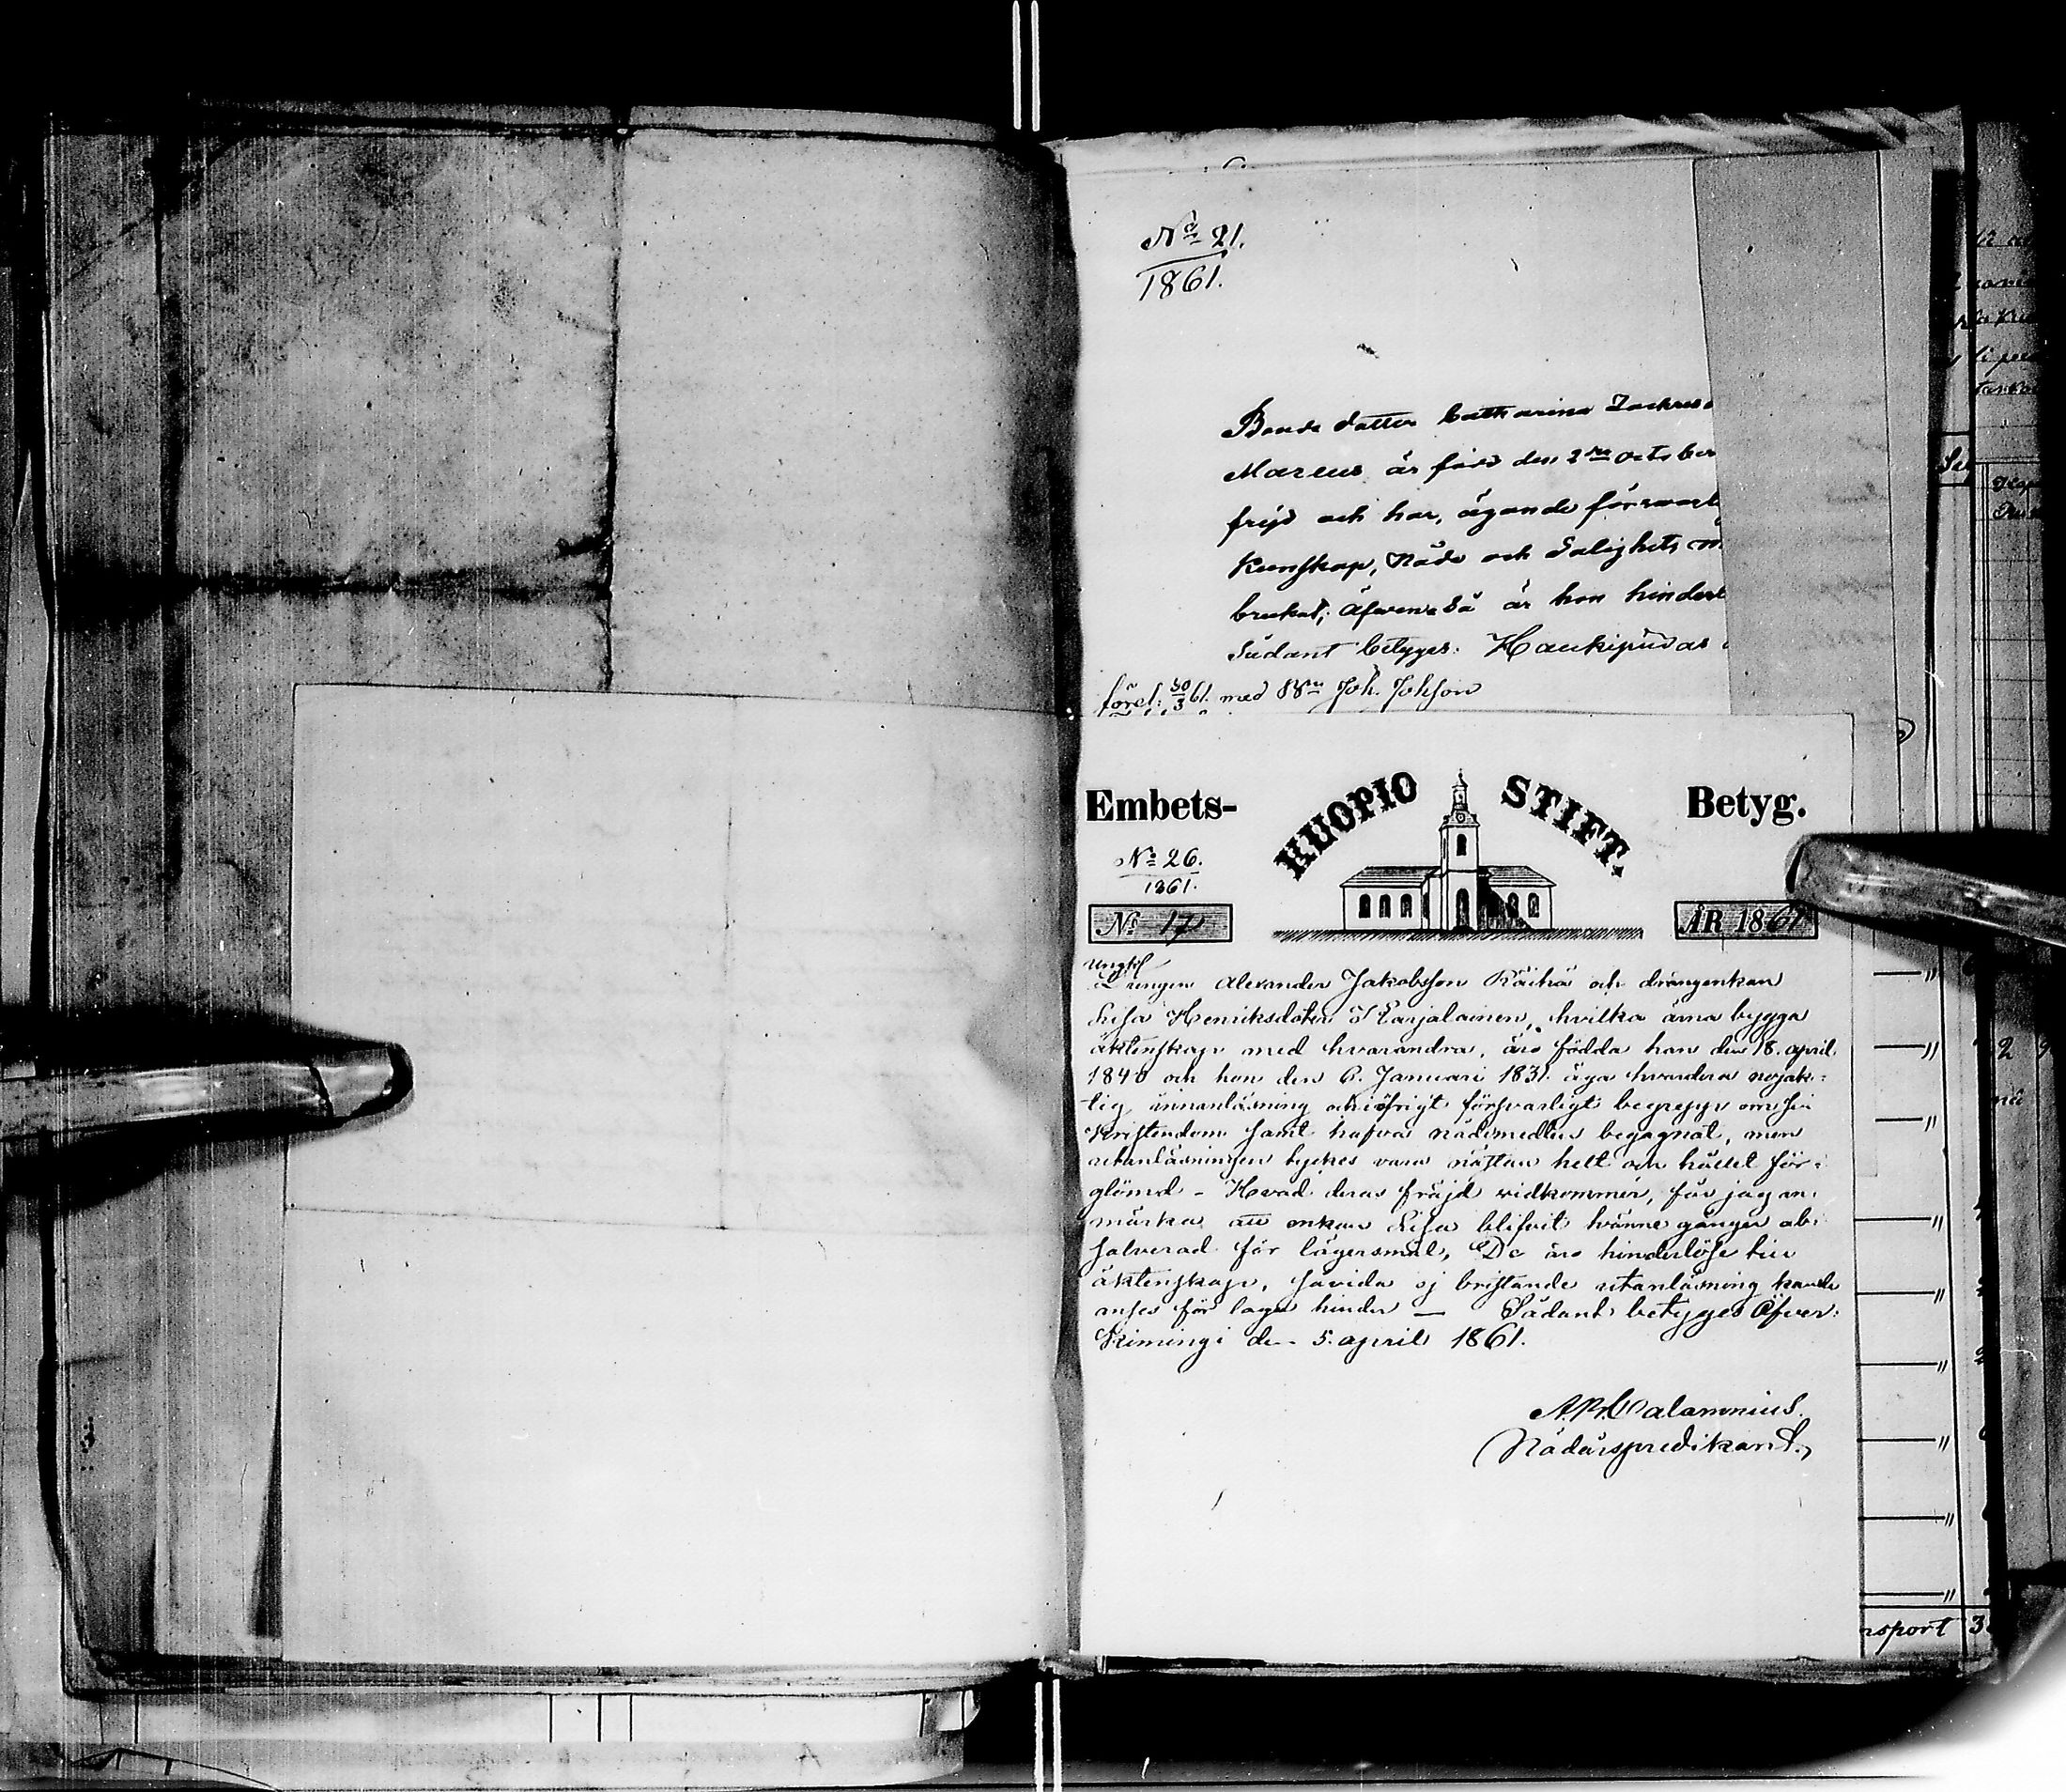 No 21.
1861.
Bonde dotter Catharina Zachris
Marcus är född den 2ra october
frejd och har, ägande förswarl
kunskap, Nåde och Salighets m
brukat; Äfwensså är hon hinderl
Sådant betygar. Haukipudas
förel: 30/3 61. med Bdn Joh. Johsson
Embets- KUOPIO STIFT. Betyg.
No 26.
1861.
No 17 ÅR 1861
ungk
Drengen Alexander Jakobsson Räihä och drängenkan
Lisa Henriksdoter Karjalainen, hvilka ärna bygga
äktenskap med hvarandra, äro födda han den 18. april
1840 och hon den 6. Januari 1831. äga hvardera nojak-
tig innanläsning och öfrigt försvarligt begrepp om sin
Kristendom samt hafva nådemedlen begagnat, men
utanläsningen tyckes vara nästan helt och hållet för-
glömd - Hvad deras fräjd widkommer, får jag an-
märka att enkan Lisa blifvit tvänne gånger ab-
solverad för lägersmål, De äro hinderlöse till
äktenskap, såvida ej bristande utanläsning kande
anses för laga hinder — Sådant betyges Öfver-
Kimingi den 5. april 1861.
Calamnius.
Nådårspredikant.
nsport 3